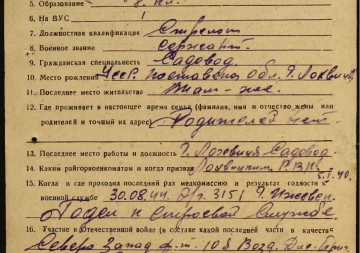 5. Образование 8 кл.
6. На ВУС
7. Должностная квалификация Стрелок
8. Военное звание сержант.
9. Гражданская специальность Садовод.
10. Место рождения УССР. Полтавская обл. г. Лохвица
11. Последнее место жительства Там-же.
12. Где проживает в настоящее время семья (фамилия, имя и отчество жены или
родителей и точный их адрес) Родителей нет.
13. Последнее место работы и должность г. Садовод.
14. Каким райгорвоенкоматом и когда призван Лохвицким РВК.
5.I.40.
15. Когда и где проходил последний раз медкомиссию и результат годности к
военной службе 30.08.44. 3151 г. Ижевск.
Годен к строевой службе.
16. Участие в Отечественной войне (в составе какой последней части в качестве
Северо Запад ф-т. 10 Возд. Дес.